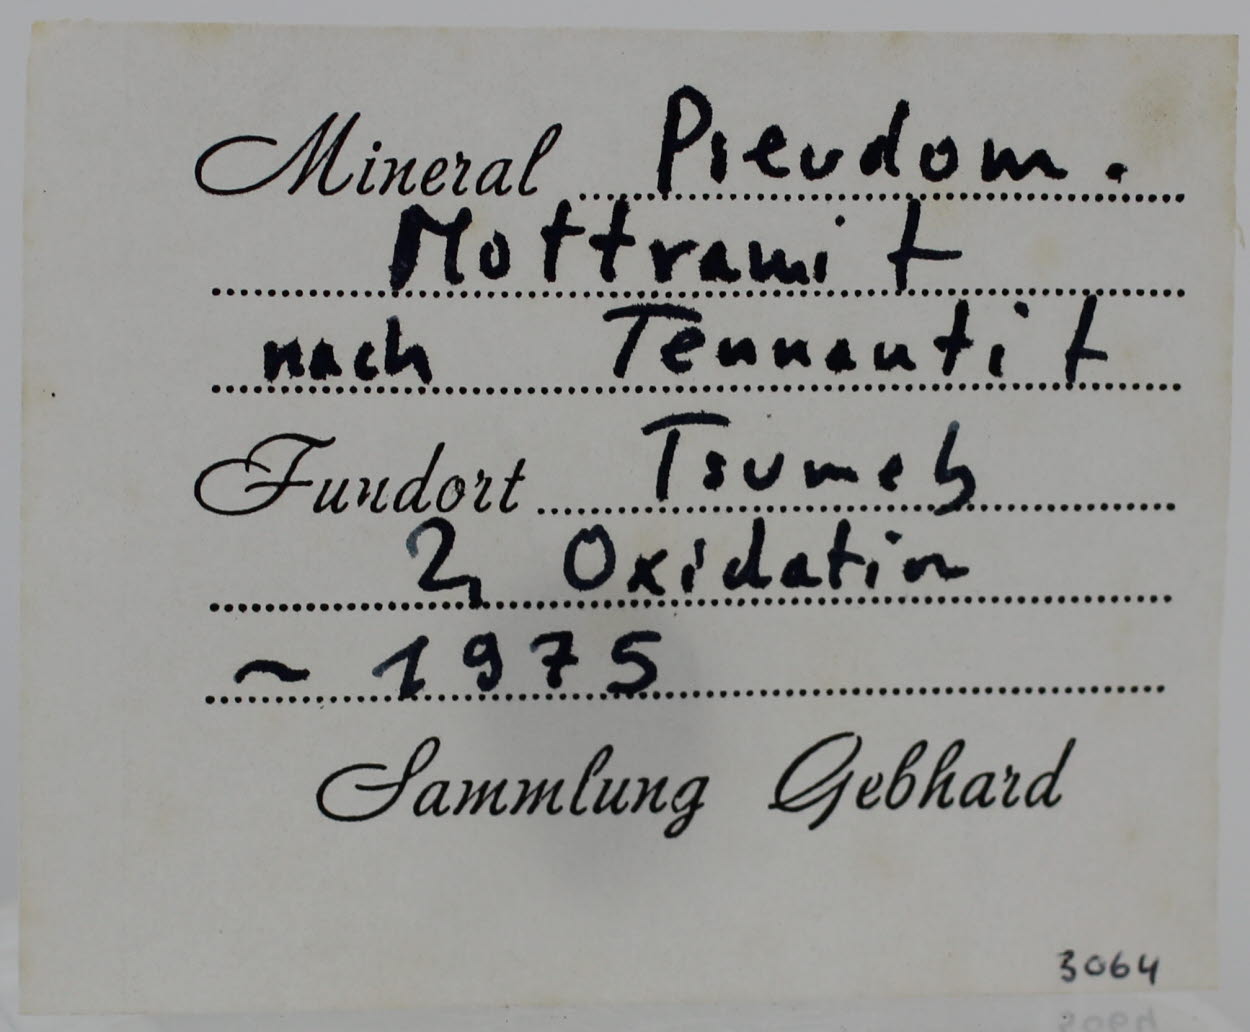 Mineral Pseudom.
Mottramit
nach Tennantit
Fundort Tsumeb
2, Oxidation
~ 1975
Sammlung Gebhard
3064